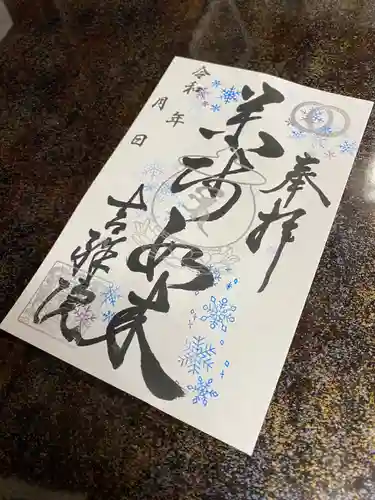 奉拝
薬師如来
吉祥院
令和 年
月 日